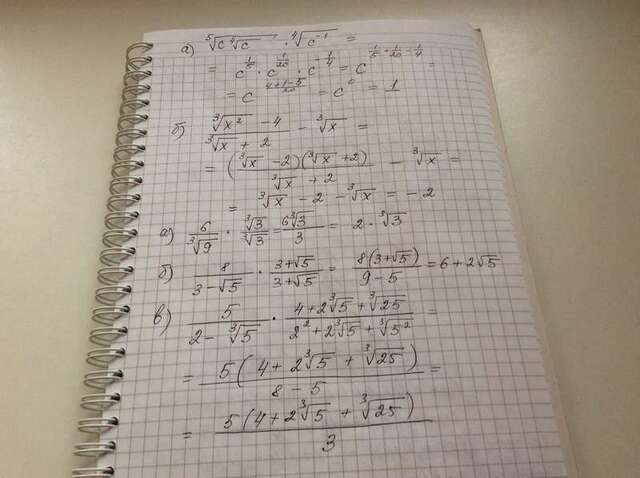 а) ⁵√(c ⁴√c) · ⁴√(c⁻¹) =
= c^(1/5) · c^(1/20) · c^(-1/4) = c^(1/5 + 1/20 - 1/4) =
= c^((4+1-5)/20) = c⁰ = 1
б) (³√(x²) - 4)/(³√x + 2) - ³√x =
= ((³√x - 2)(³√x + 2))/(³√x + 2) - ³√x =
= ³√x - 2 - ³√x = - 2
а) 6/³√9 · ³√3/³√3 = 6³√3/3 = 2 · ³√3
б) 8/(3 - √5) · (3 + √5)/(3 + √5) = 8(3 + √5)/(9 - 5) = 6 + 2√5
в) 5/(2 - ³√5) · (4 + 2³√5 + ³√25)/(2² + 2³√5 + ³√5²) =
= 5(4 + 2³√5 + ³√25)/(8 - 5) =
= 5(4 + 2³√5 + ³√25)/3